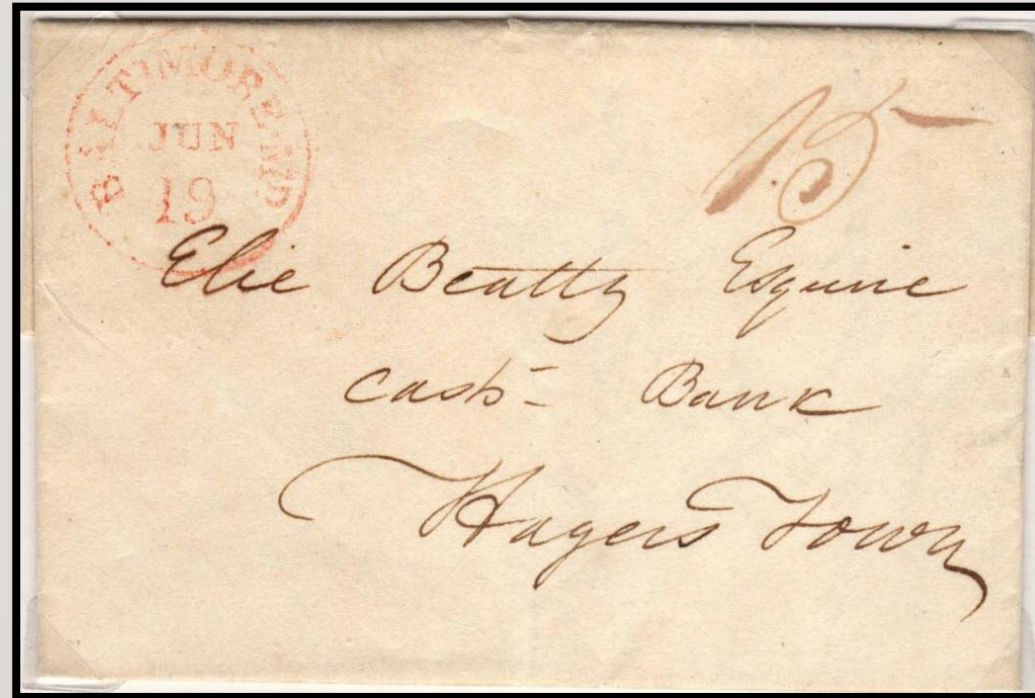 BALTIMORE MD
JUN
19
15
Elie Beatty Esquire
cashr Bank
Hagers Town